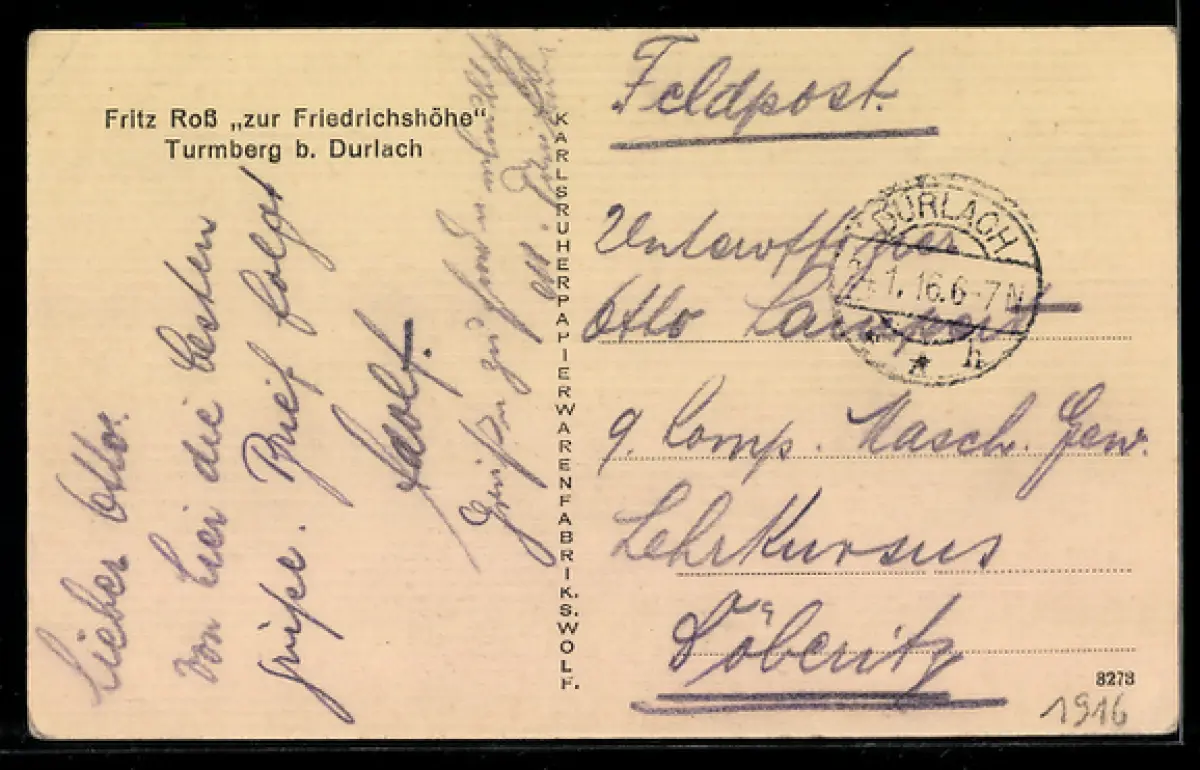 Fritz Roß „zur Friedrichshöhe“
Turmberg b. Durlach
Lieber Otto.
Von hier die besten
Grüße. Brief folgt
Adolf.
KARLSRUHER PAPIERWARENFABRIK S. WOLF.
Feldpost.
Unteroffizier
Otto
9. Comp. Masch. Gew.
Lehrkursus
Döberitz
DURLACH
1.16.6-7N
* h
8273
1916